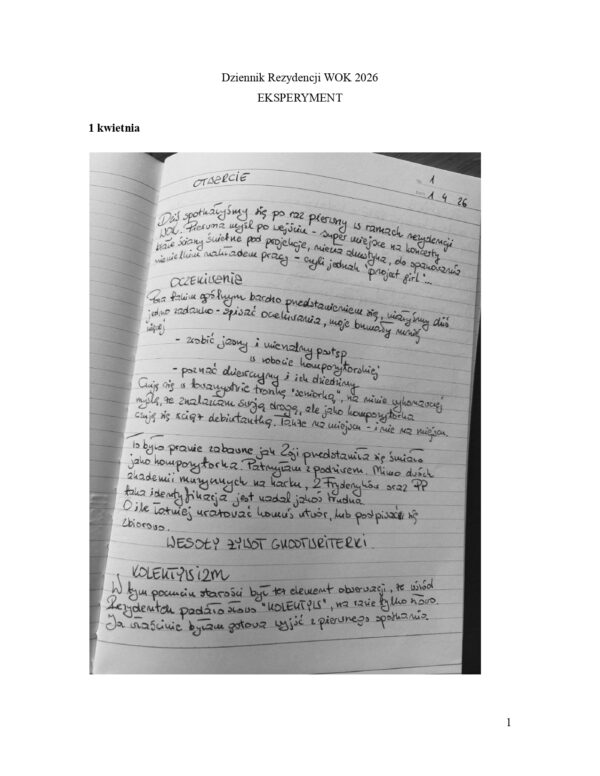 Dziennik Rezydencji WOK 2026
EKSPERYMENT
1 kwietnia
OTWARCIE
1
1 4 26
Dziś spotkałyśmy się po raz pierwszy w ramach rezydencji
WOK. Pierwsza myśl po wejściu - super miejsce na koncerty
białe ściany świetne pod projekcje, niezła akustyka, do opanowania
niewielkim nakładem pracy - czyli jednak "projekt girl"...
OCZEKIWANIA
Poza takim ogólnym bardzo przedstawieniem się, miałyśmy dziś
jedno zadanko - spisać oczekiwania, moje brzmiały mniej
więcej
- zrobić jasny i mierzalny postęp
w robocie kompozytorskiej
- poznać dziewczyny i ich dziedziny
Czuję się w towarzystwie trochę "seniorką", na niwie wykonawczej
myślę, że znalazłam swoją drogę, ale jako kompozytorka
czuję się wciąż debiutantką. Także na miejscu - i nie na miejscu.
To było prawie zabawne jak Zoji przedstawia się śmiało
jako kompozytorka. Patrzyłam z podziwem. Mimo dwóch
akademii muzycznych na karku, 2 Fryderyków oraz PP
taka identyfikacja jest nadal jakoś trudna
O ile łatwiej uratować komuś utwór, lub podpisać się
zbiorowo.
WESOŁY ŻYWOT GHOSTWRITERKI.
KOLEKTYWIZM
W tym poczuciu starości był też element obserwacji, że wśród
Rezydentek padało słowo "KOLEKTYW", na razie tylko słowo.
Ja właściwie byłam gotowa wyjść z pierwszego spotkania.
1